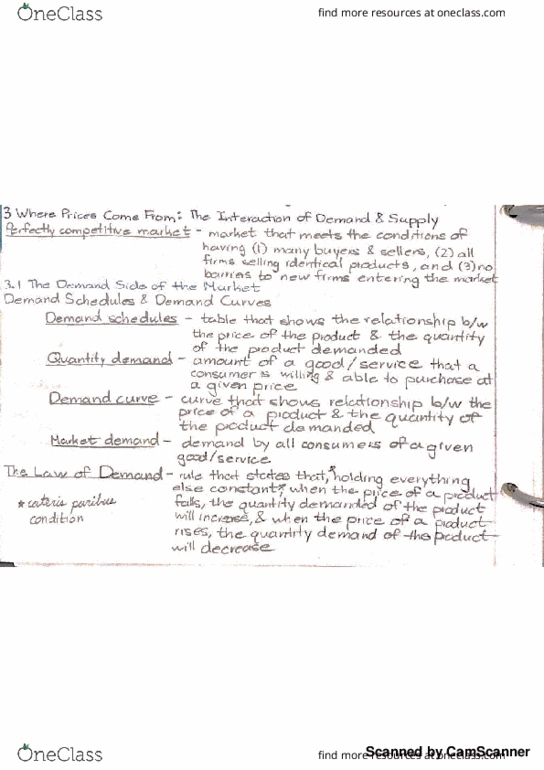 OneClass
find more resources at oneclass.com
3 Where Prices Come From: The Interaction of Demand & Supply
Perfectly competitive market - market that meets the conditions of
having (1) many buyers & sellers, (2) all
firms selling identical products, and (3) no
barriers to new firms entering the market
3.1 The Demand Side of the Market
Demand Schedules & Demand Curves
Demand schedules - table that shows the relationship b/w
the price of the product & the quantity
of the product demanded
Quantity demand - amount of a good/service that a
consumer is willing & able to purchase at
a given price
Demand curve - curve that shows relationship b/w the
price of a product & the quantity of
the product demanded
Market demand - demand by all consumers of a given
good/service
The Law of Demand - rule that states that, *holding everything
else constant*, when the price of a product
falls, the quantity demanded of the product
will increase, & when the price of a product
rises, the quantity demand of the product
will decrease
* ceteris paribus
condition
OneClass
find more resources at oneclass.com
Scanned by CamScanner